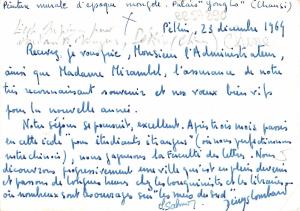 Peinture murale d'époque mongole. Palais "Yonglo" (Chansi)
Pékin, 23 décembre 1964
Recevez, je vous prie, Monsieur l'Administrateur,
ainsi que Madame Mirambel, l'assurance de notre
très reconnaissant souvenir et nos vœux bien vifs
pour la nouvelle année.
Notre séjour se poursuit, excellent. Après trois mois passés
en cette école pour étudiants étrangers (où nous perfectionnons
notre chinois), nous gagnons la Faculté des lettres. Nous
découvrons progressivement une ville qui est en plein devenir
et passons de longues heures chez les bouquinistes et les libraires,
où nombreux sont les ouvrages sur "les mers du sud"
Denys Lombard